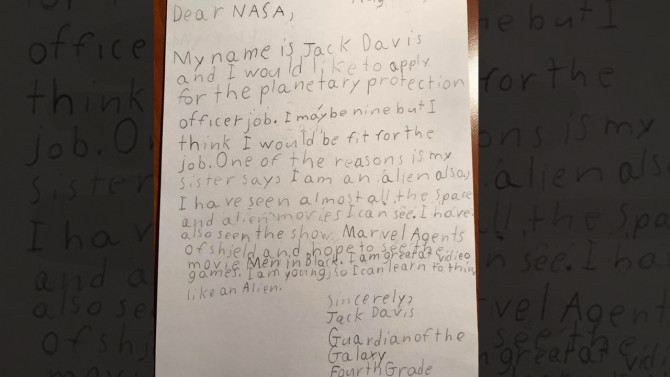 Dear NASA,
My name is Jack Davis
and I would like to apply
for the planetary protection
officer job. I may be nine but I
think I would be fit for the
job. One of the reasons is my
sister says I am an alien also
I have seen almost all the space
and alien movies I can see. I have
also seen the show Marvel Agents
of Shield and hope to see the
movie Men in Black. I am great at video
games. I am young, so I can learn to think
like an Alien.
Sincerely,
Jack Davis
Guardian of the
Galaxy
Fourth Grade